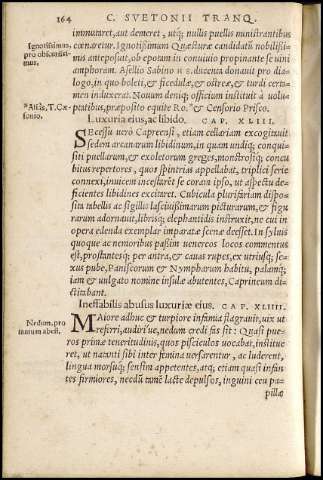 164 C. SVETONII TRANQ.
immutaret, aut demeret, utq; nullis puellis ministrantibus
Ignotissimus, pro obscurissimus.
cœnaretur. Ignotissimum Quæsturæ candidatū nobilissimis anteposuit, ob epotam in conuiuio propinante se uini
amphoram. Asellio Sabino H S. ducenta donauit pro dialogo, in quo boleti, & ficedulæ, & ostreæ, & turdi certamen induxerat. Nouum deniq; officium instituit à uoluptatibus, præposito equite Ro.
& Censorio Prisco.
Luxuria eius, ac libido. CAP. XLIII.
SEcessu uerò Capreensi, etiam sellariam excogitauit
sedem arcanarum libidinum, in quam undiq; conquisiti puellarum, & exoletorum greges, monstrosiq; concubitus repertores, quos spintrias appellabat, triplici serie
connexi, inuicem incestarēt se coram ipso, ut aspectu deficientes libidines excitaret. Cubicula plurifariam disposita tabellis ac sigillis lasciuissimarum picturarum, & figurarum adornauit, librisq; elephantidis instruxit, ne cui in
opera edenda exemplar imparatæ scenæ deesset. In syluis
quoque ac nemoribus passim uenereos locos commentus
est, prostantesq; per antra, & cauas rupes, ex utriusq; sexus pube, Paniscorum & Nympharum habitu, palamq;
iam & uulgato nomine insulæ abutentes, Caprineum dictitabant.
Ineffabilis abusus luxuriæ eius. CAP. XLIIII.
Nedum, pro
MAiore adhuc & turpiore infamia flagrauit, uix ut
referri, audiriue, nedum credi fas sit: Quasi pueros primæ teneritudinis, quos pisciculos uocabat, institueret, ut natanti sibi inter femina uersarentur, ac luderent,
lingua morsuq; sensim appetentes, atq; etiam quasi infantes firmiores, necdū tamē lacte depulsos, inguini ceu papillæ